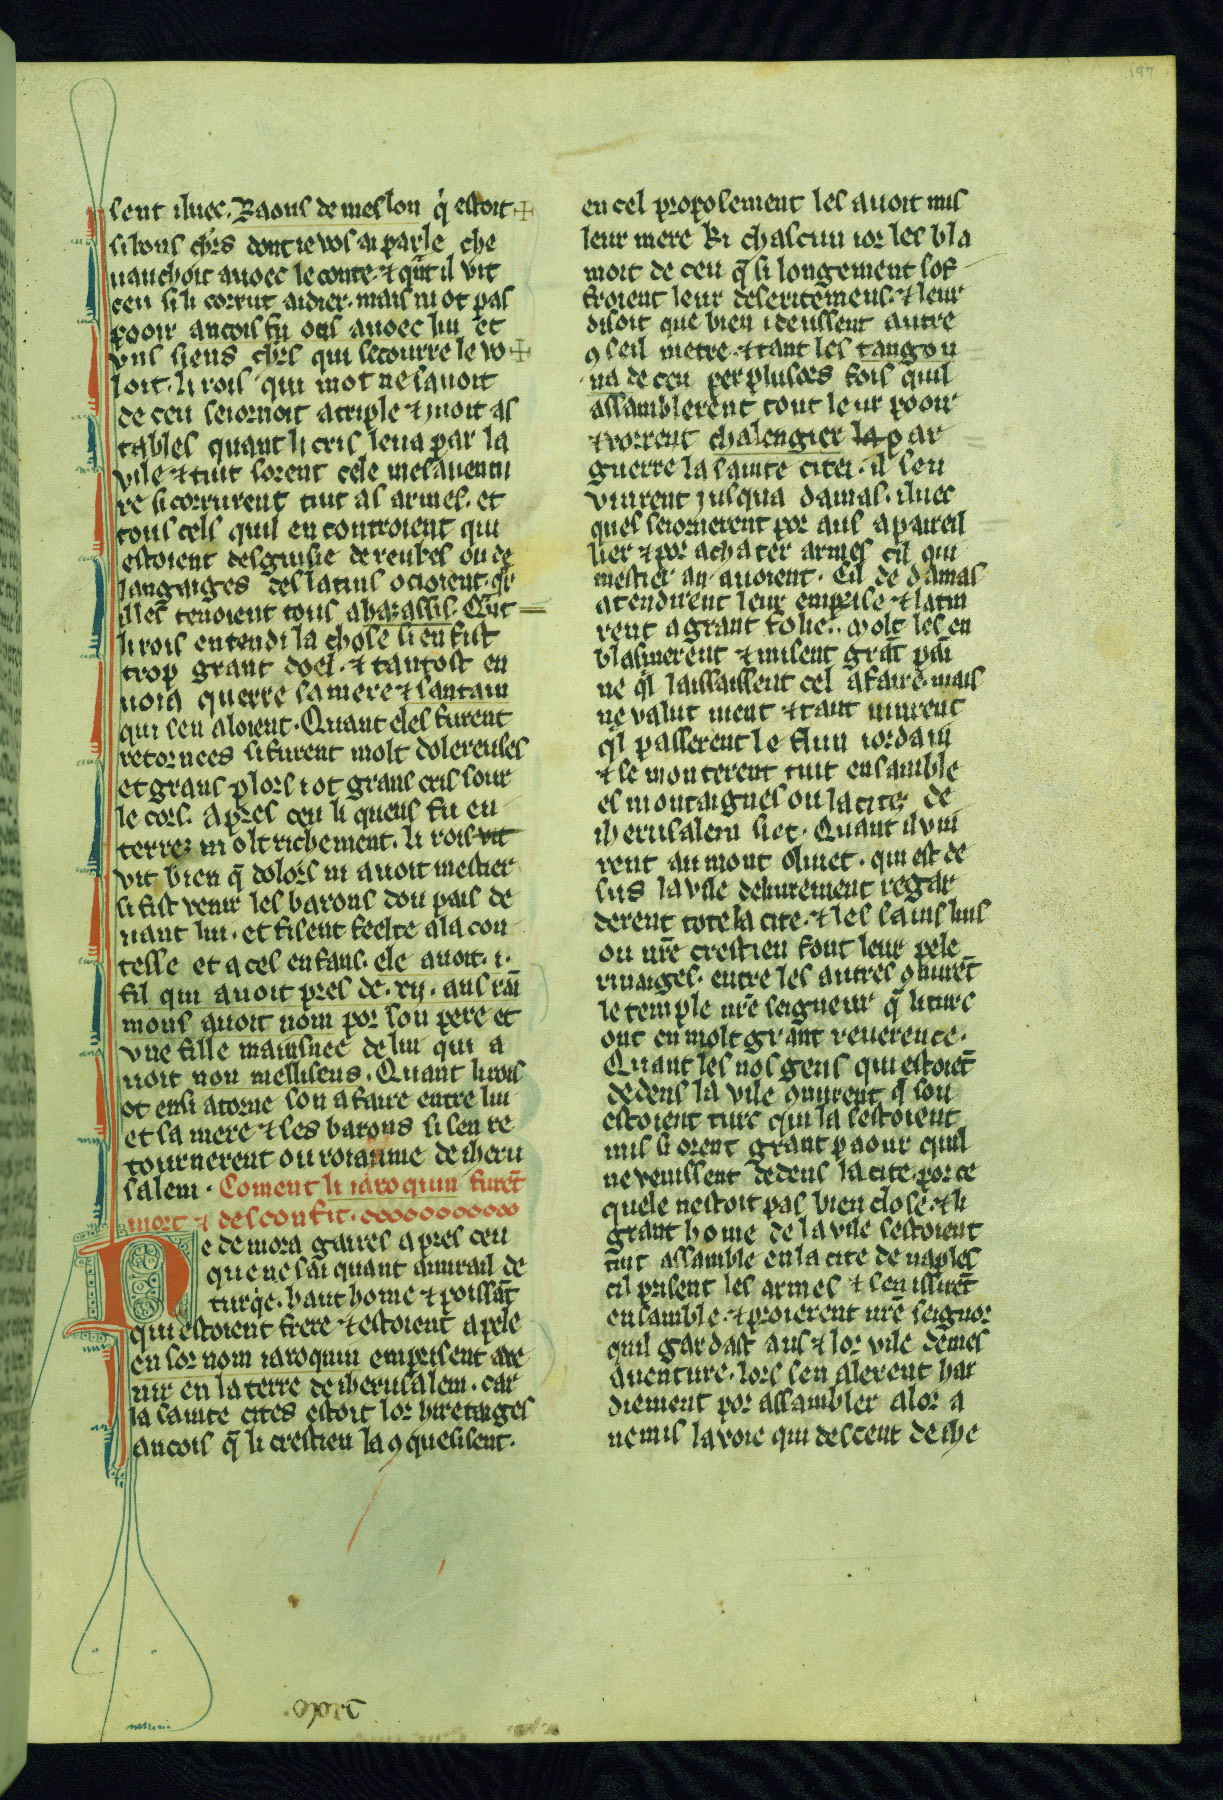 197
sent iluec. Raous de meslou q̇ estoit
si bons chrs dont ie vos ai parle che
uauchoit auoec le conte ⁊ qn̄t il vit
ceu si li corrut aidier. mais ni ot pas
pooir ancois fu ocis auoec lui et
vns siens chrs qui secourre le vo
loit. li rois qui mot ne sauoit
de ceu seiornoit a triple ⁊ iuoit as
tables quant li cris leua par la
vile ⁊ tuit sorent cele mesauentu
re si corrurent tuit as armes. et
tous cels quil encontroient qui
estoient desguisie de reubes ou de
langaiges des latins ocioient. qr̄
illes tenoient tous a harassis. Qn̄t
li rois entendi la chose si en fist
trop grant doel. ⁊ tantost en
uoia querre sa mere ⁊ santain
qui sen aloient. Quant eles furent
retornees si furent molt dolereuses
et grans plors i ot grans cris sour
le cors. apres ceu li quens fu en
terrez molt richement. li rois vit
vit bien q̄ dolors ni auoit mestier
si fist venir les barons dou pais de
uant lui. et fisent feelte a la con
tesse et a cel enfans. ele auoit .i.
fil qui auoit pres de .xij. ans rai
mons auoit nom por son pere et
vne fille mainsnee de lui qui a
uoit non mellisens. Quant li rois
ot ensi atorne son afaire entre lui
et sa mere ⁊ ses barons si sen re
tournerent ou roiaume de iheru
salem. Coment li iaroquin furēt
mort ⁊ desconfit.
Ne demora gaires apres ceu
que ne sai quant amirail de
turqe. haut home ⁊ poissāt
qui estoient frere ⁊ estoient apele
en sor nom iaroquin emprisent a re
uir en la terre de iherusalem. car
la sainte cites estoit lor hiretaiges
ancois q̄ li crestien la 9quesissent.
en cel proposement les auoit mis
leur mere ki chascun ior les bla
moit de ceu q̄ si longement sof
froient leur deseritemens. ⁊ leur
disoit que bien i deussent autre
9seil metre. ⁊ tant les tangou
na de ceu per plusors fois quil
assamblerent tout leur pooir
⁊ vorrent chalengier la par
guerre la sainte citei. il sen
vinrent jusqua damas. iluec
ques seiornerent por aus apareil
lier ⁊ por achater armes cil qui
mestier an auoient. Cil de damas
atendirent leur emprise ⁊ latin
rent a grant folie. molt les en
blasmerent ⁊ misent grāt pai
ne q̄l laissaissent cel afaire. mais
ne valut nient ⁊ tant uinrent
q̄l passerent le flun iordain
⁊ se monterent tuit ensamble
es montaignes ou la citez de
iherusalem siet. Quant il vin
rent au mont oliuet. qui est de
sus la vile deliurement regar
derent tote la cite. ⁊ les sains lius
ou nr̄e crestien font leur pele
rinaiges. entre les autres 9nurēt
le temple nr̄e seigneur q̄ li turc
ont en molt grant reuerence.
Quant les nos gens qui estoiēt
dedens la vile 9nurent q̄ sou
estoient turc qui la sestoient
mis si orent grant paour quil
ne venissent dedens la cite. por ce
quele nestoit pas bien close. ⁊ li
grant home de la vile sestoient
tuit assamble en la cite de naples
cil prisent les armes ⁊ sen issirēt
ensamble. ⁊ proierent nr̄e seignor
quil gardast aus ⁊ lor vile de mes
auenture. lors sen alerent har
diement por assambler a lor a
nemis la voie qui descent de ihe